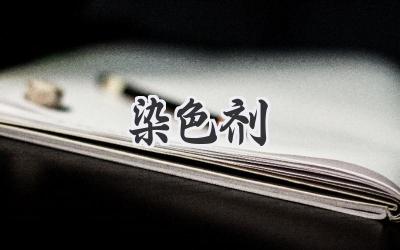 染色剂